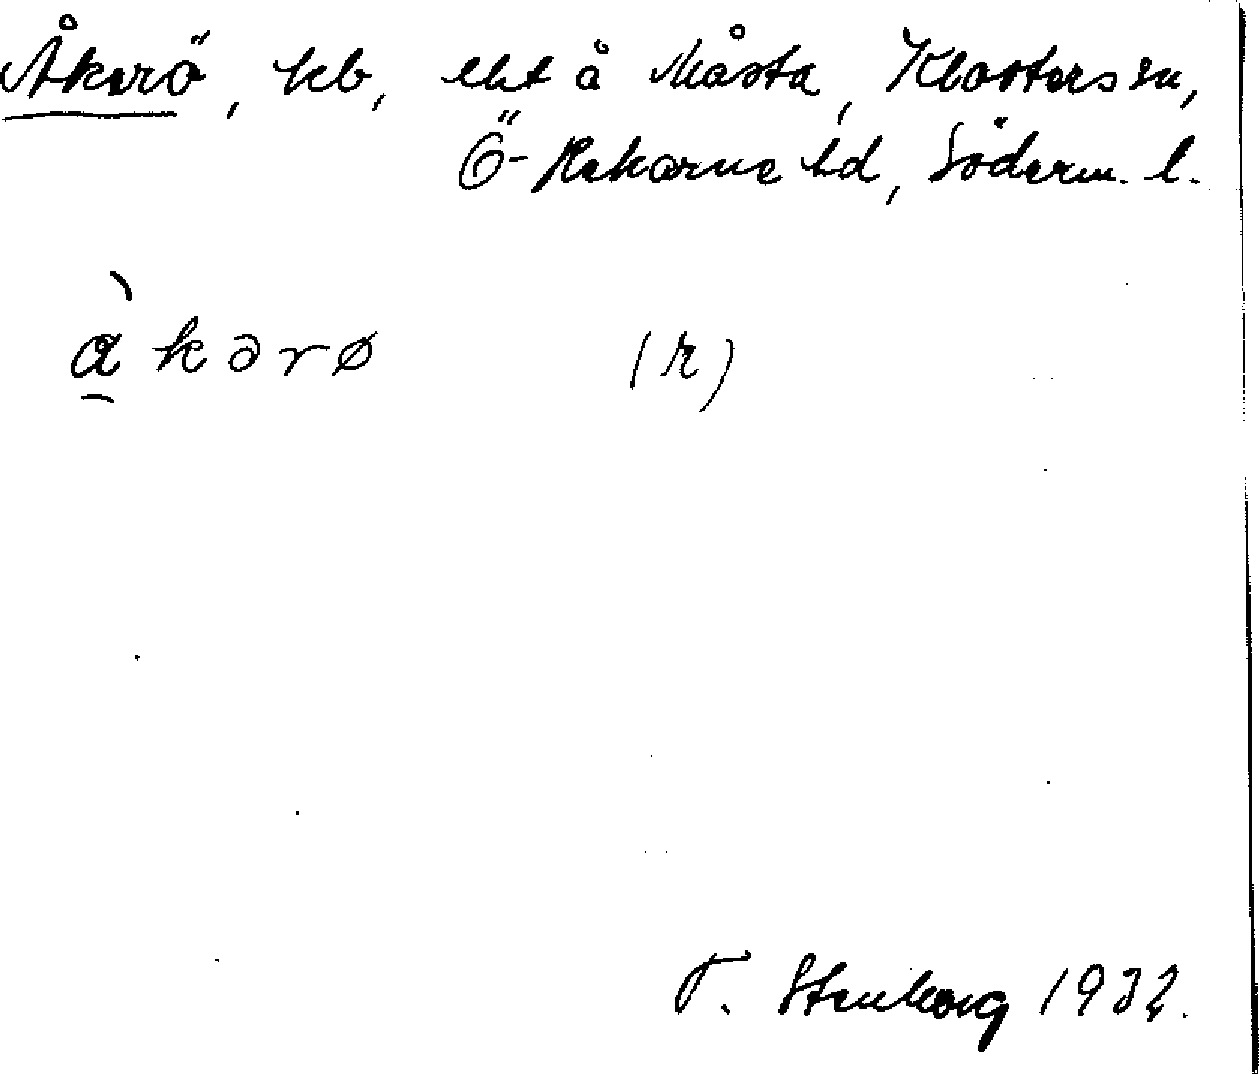 Åkerö, kb, ekt å Måsta, Klosters sn,
Ö-Rekarne hd, Söderm. l.
àkərø (r)
T. Stenborg 1932.